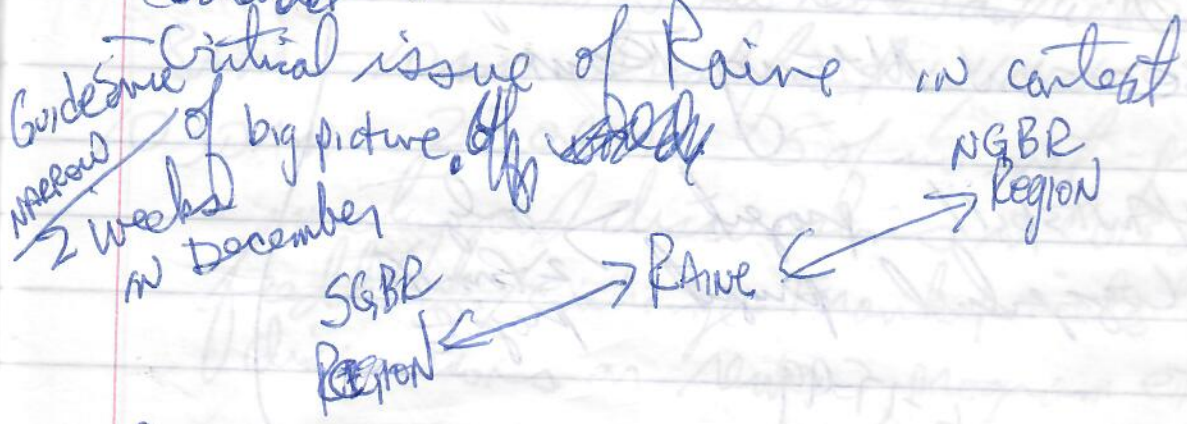 - Critical issue of Raine in context
of big picture.
NARROW
2 weeks
in December
NGBR
REGION
RAINE
SGBR
REGION